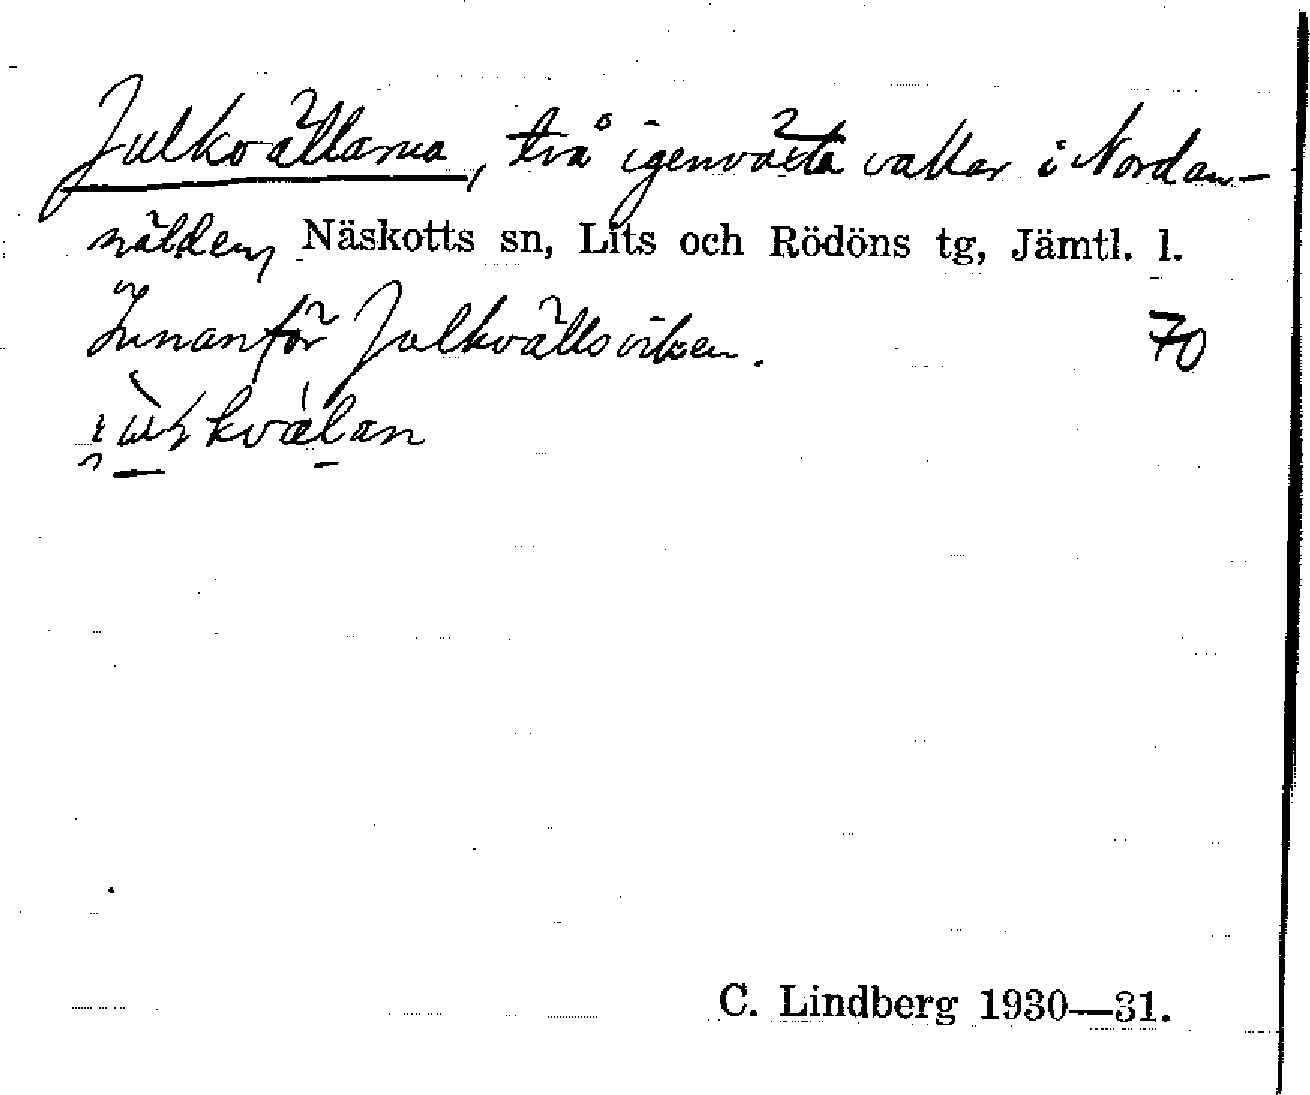 Julkvällarna, två igenväxta vallar i Nordan-
nälden, Näskotts sn, Lits och Rödöns tg, Jämtl. l.
Innanför Julkvällsviken. 70
C. Lindberg 1930—31.